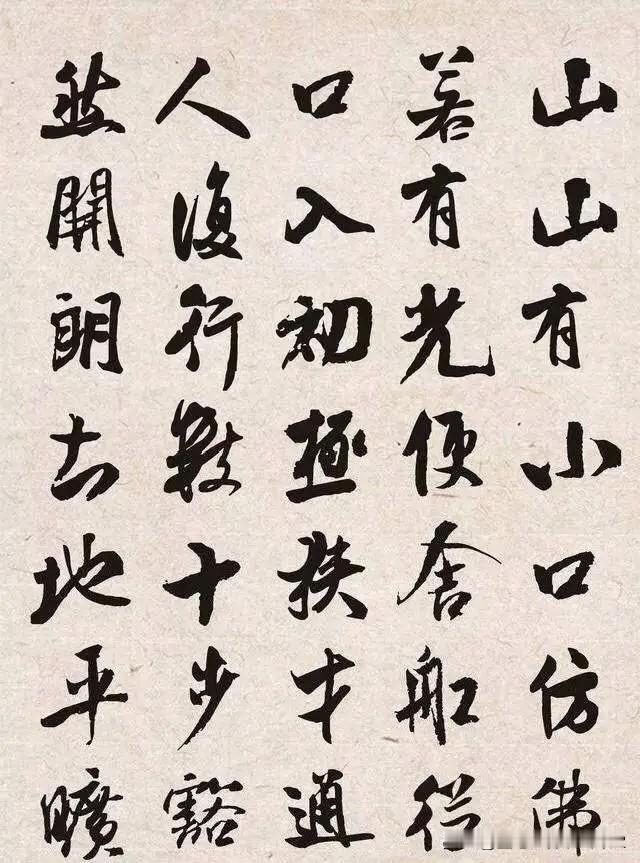 山山有小口仿佛
若有光便舍船從
口入初極狹才通
人復行數十步豁
然開朗土地平曠